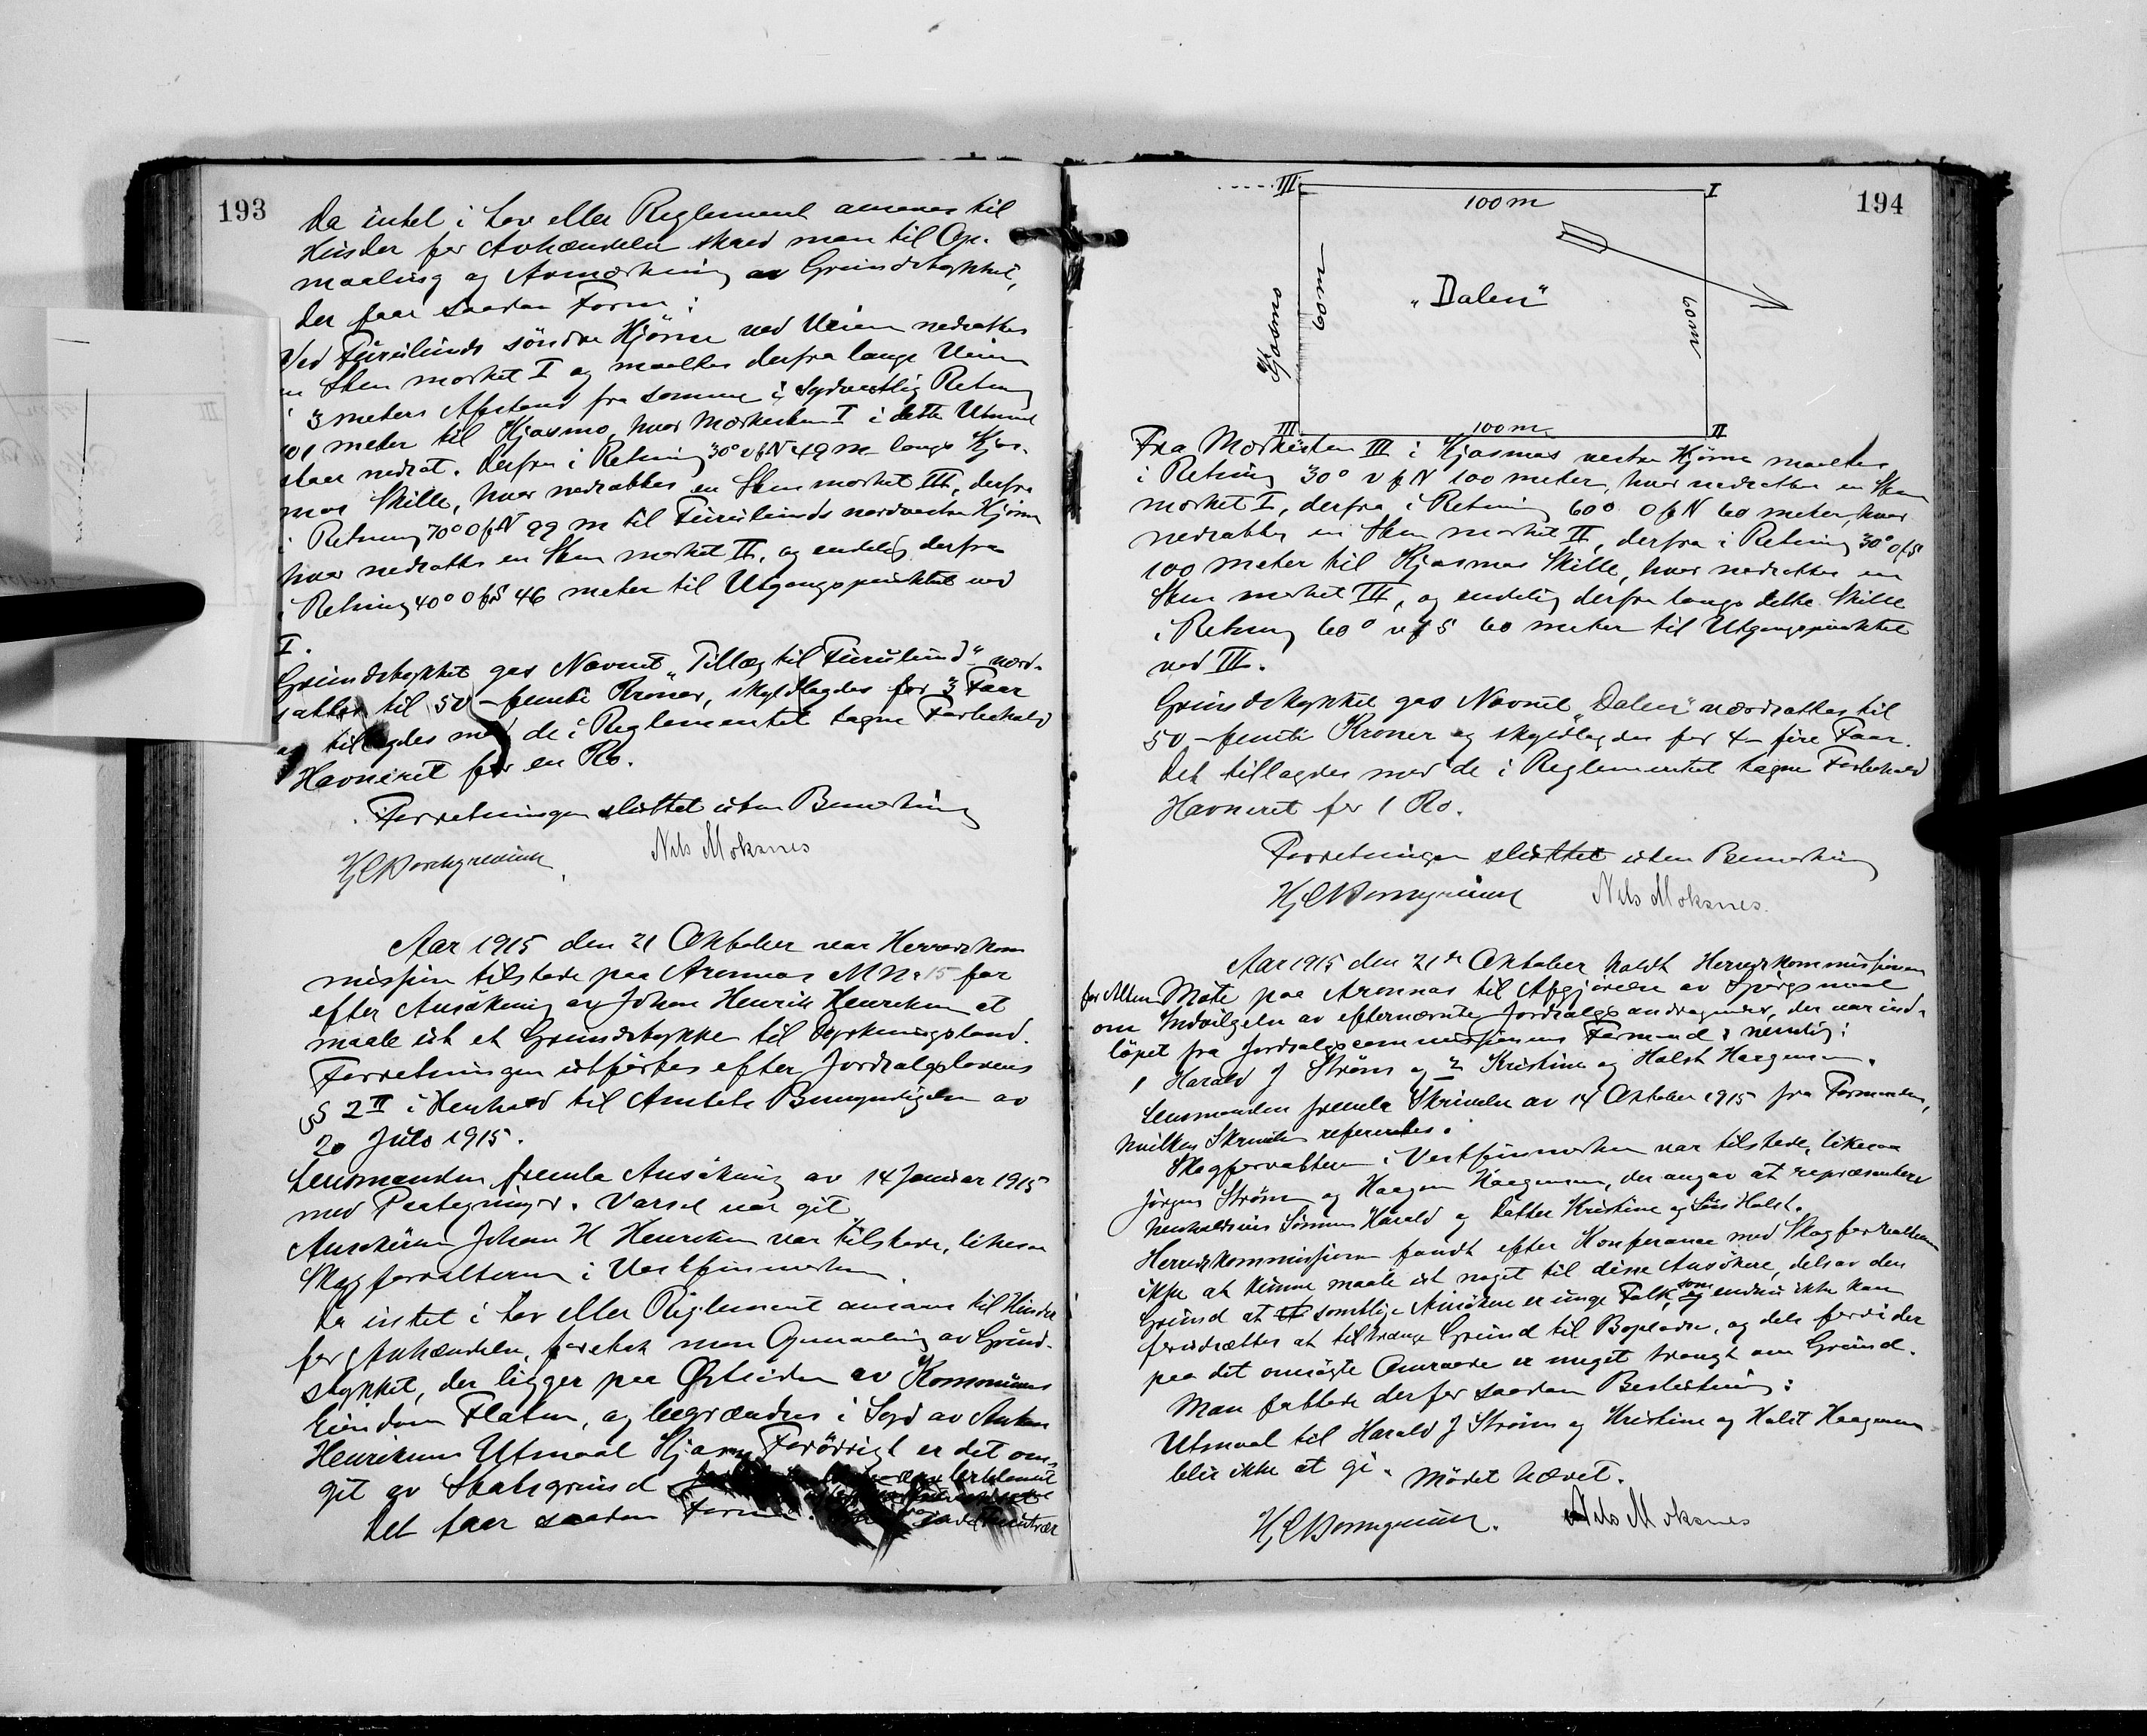 193
Da intet i Lov eller Reglement ansaaes til
Hinder for Avhændelse skred man til Op-
maaling og Avmærkning av Grundstykket,
der faar saadan Form:
Ved Furulunds söndre Hjörne ved Veien nedsattes
en Sten mærket I og maaltes derfra langs Veien
i 3 meters Afstand fra samme i Sydvestlig Retning
101 meter til Kjosmo, hvor Mærkesten I i dette Utmaal
staar nedsat. Derfra i Retning 30° v f N 49 m langs Kjos-
mos Skille, hvor nedsattes en Sten mærket III, derfra
i Retning 70° O f N 99 m til Furulunds nordvestre Hjörne
hvor nedsattes en Sten mærket II, og endelig derfra
i Retning 40° O f S 46 meter til Utgangspunktet ved
I.
Grundstykket gas Navnet "Tillæg til Furulund" værd-
sattes til 50 - femti Kroner, skyldlagdes for 3 Faar
og tillagdes med de i Reglementet tagne Forbehold
Havneret for en Ko.
Forretningen sluttet uten Bemerkning
Nils Moksnes
Aar 1915 den 21 Oktober var Herredskom
missjon tilstede paa Aronnes M Nr 15 for
efter Ansökning av Johan Henrik Henriksen at
maale ut et Grundstykke til Dyrkningsland.
Forretningen utförtes efter Jordsalgslovens
§ 2 II i Henhold til Amtets Bemyndigelse av
20 Juli 1915.
Lensmanden fremla Ansökning av 14 Januar 1915
med Paategninger. Varsel var git
Ansökeren Johan H Henriksen var tilstede, likesaa
Skogforvalteren i Vestfinmarken.
Da intet i Lov eller Reglement ansaaes til Hinder
for Avhændelse, foretok man Opmaaling av Grund-
stykket, der ligger paa Östsiden av Kommunens
Eiendom Flaten, og begrændses i Syd av Anton
Henriksens Utmaal Kjosmo. Forövrigt er det om-
git av Statsgrund
Det faar saadan Form:
194
III
I
100 m
"Dalen"
Kjosmo
60 m
60 m
III
100 m
II
Fra Mærkesten III i Kjosmos vestre Hjörne maaltes
i Retning 30° v f N 100 meter, hvor nedsattes en Sten
mærket I, derfra i Retning 60° O f N 60 meter, hvor
nedsattes en Sten mærket II, derfra i Retning 30° O f S
100 meter til Kjosmos Skille, hvor nedsattes en
Sten mærket III, og endelig derfra langs dette Skille
i Retning 60° v f S 60 meter til Utgangspunktet
ved III.
Grundstykket gas Navnet "Dalen" værdsattes til
50 - femti Kroner og skyldlagdes for 4 - fire Faar.
Det tillagdes med de i Reglementet tagne Forbehold
Havneret for 1 Ko.
Forretningen sluttet uten Bemerkning
Nils Moksnes.
Aar 1915 den 21de Oktober holdt Herredskommissjonen
for Alten Möte paa Aronnes til Afgjörelse av Spörgsmaal
om Indvilgelse av efternævnte Jordsalgsandragender, der var ind-
löpet fra Jordsalgscommissionens Formand: nemlig:
1 Harald J Ström og 2 Kristine og Halst Haagensen.
Lensmanden fremla Skrivelse av 14 Oktober 1915 fra Formanden,
hvilken Skrivelse refereredes.
Skogforvalteren i Vestfinmarken var tilstede, likesaa
Jörgen Ström og Haagen Haagensen, der angav at repræsentere
henholdsvis Sönnen Harald og Datter Kristine og Sön Halst.
Herredskommissjonen fandt efter Konferance med Skogforvalteren
ikke at kunne maale ut noget til disse Ansökere, dels av den
Grund at samtlige Ansökere er unge Folk, som endnu ikke kan
forutsættes at tiltrænge Grund til Boplads, og dels fordi der
paa det omsögte Omraade er meget trangt om Grund.
Man fattede derfor saadan Beslutning:
Utmaal til Harald J Ström og Kristine og Halst Haagensen
blir ikke at gi. Mödet hævet.
Nils Moksnes